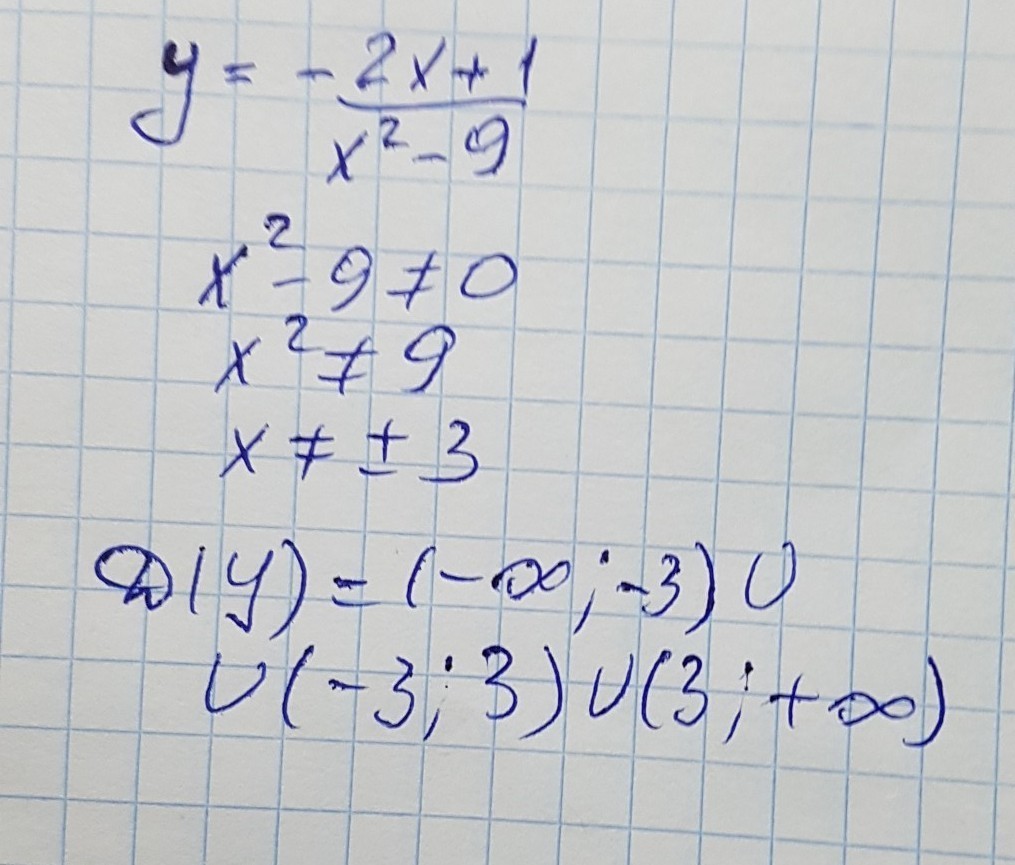 y = - 2x+1 / x² - 9
x² - 9 ≠ 0
x² ≠ 9
x ≠ ± 3
D(y) = (-∞; -3) ∪
∪ (-3; 3) ∪ (3; +∞)